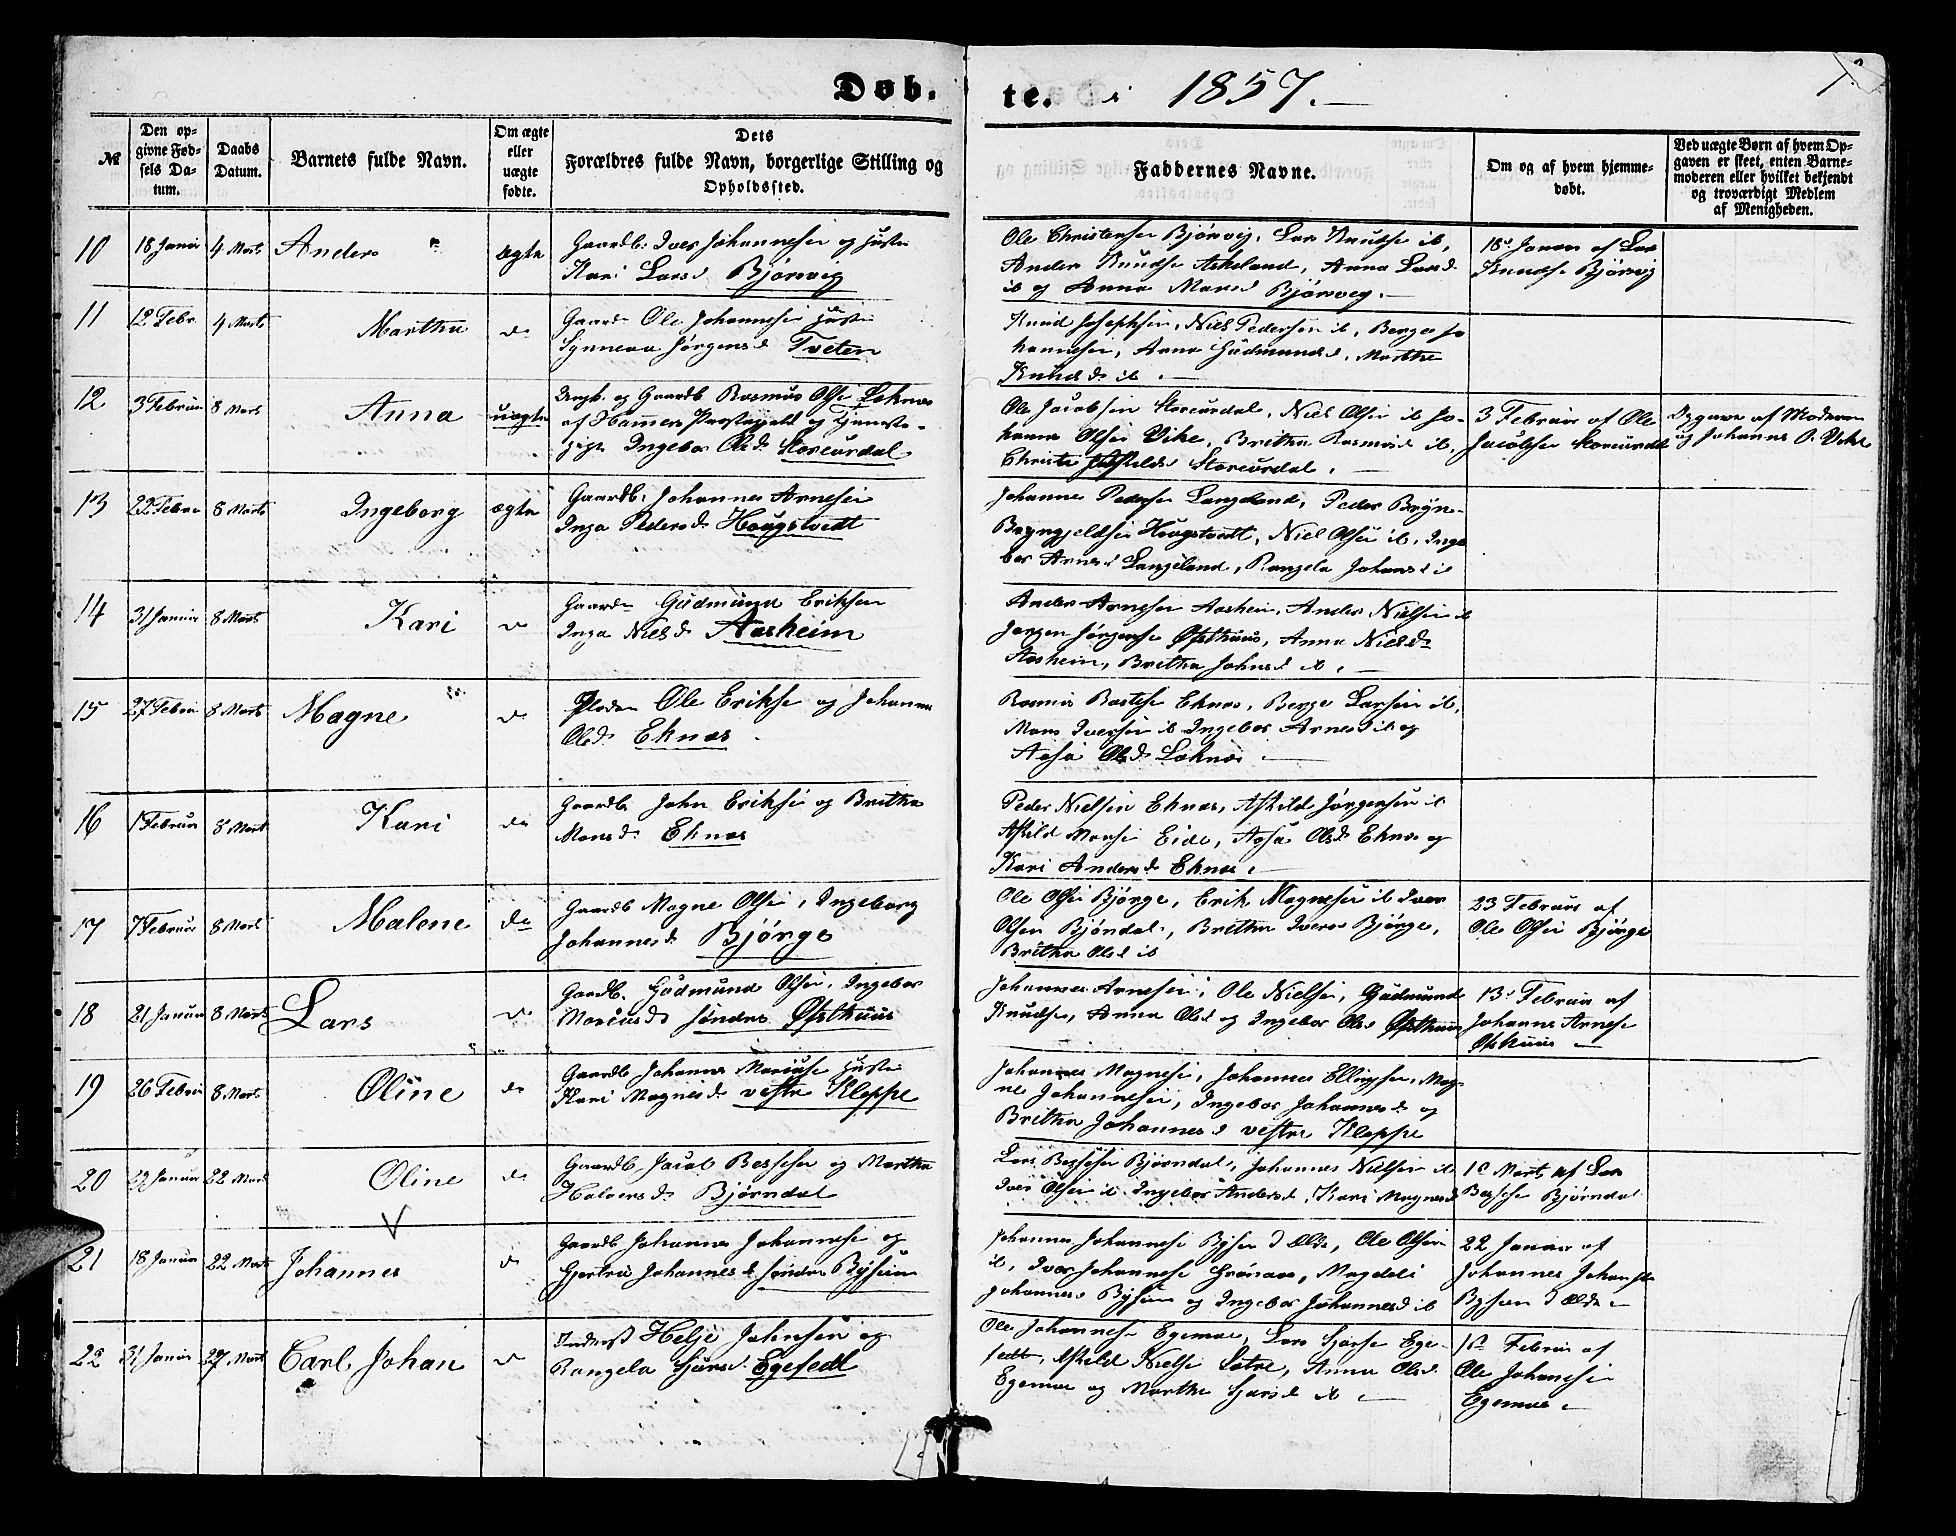 Døb.
te. i 1857.
№
Den op-
givne Fød-
sels Da-
tum.
Daabs
Datum.
Barnets fulde Navn.
Om ægte
eller
uægte
fødte.
Dets
Forældres fulde Navn, borgerlige Stilling og
Opholdssted.
Faddernes Navne.
Om og af hvem hjemme-
døbt.
Ved uægte Børn af hvem Op-
gaven er skeet, enten Barne-
moderen eller hvilket bekjendt
og troværdigt Medlem
af Menigheden.
10 18 Januar 4 Marts Anders ægte
Gaardb. Iver Johannesen og Hustru
Kari Larsd Bjørsvig
Ole Christensen Bjørsvig, Lars Knudsen ib,
Anders Knudsen Askeland, Anna Larsd
ib og Anna Monsd Bjørsvig.
18d Januar af Lars
Knudsen Bjørsvig
11 12 Febr. 4 Marts Martha do
Gaardm Ole Johannesen Hustru
Synneva Jørgensd Tveten
Knud Josephsen, Niels Pedersen ib, Berge Jo
hannesen, Anna Gudmundsd, Martha
Knudsd ib.
12 3 Februar 8 Marts Anna uægte
Ungk. og Gaardb Rasmus Olsen Loknæs
af Hammers Præstegjeld og Tjeneste-
pige Ingebor Olsd Storeurdal
Ole Jacobsen Storeurdal, Niels Olsen ib Jo-
hannes Olsen Vike, Britha Rasmusd ib,
Christi Askildsd Storeurdal.
3 Februar af Ole
Jacobsen Storeurdal
Opgaven af Moderen
og Johannes O. Vike
13 22 Februar 8 Marts Ingeborg ægte
Gaardb. Johannes Arnesen
Inga Pedersd Hougstvedt
Johannes Pedersen Langeland, Peder Bryn-
Brynjeldsen Hougstvedt, Niels Olsen ib, Inge
bor Arnesd Langeland, Rangela Johansd ib
14 31 Januar 8 Marts Kari do
Gaardm Gudmund Eriksen
Inga Nielsd Aasheim
Anders Arnesen Aasheim, Anders Nielsen ib
Jørgen Jørgensen Østhuus, Anna Nielsd
Aasheim, Britha Johnsd ib.
15 27 Februar 8 Marts Magne do
Ole Eriksen og Johanna
Olsd Eknæs
Rasmus Eknæs, Berge Larsen ib,
Mons Iversen ib Ingebor Arnesd ib og
Aasa Olsd Loknæs.
16 1 Februar 8 Marts Kari do
Gaardb John Eriksen og Britha
Monsd Eknæs
Peder Nielsen Eknæs, Askild Jørgensen ib
Askild Monsen Eide, Aasa Olsd Eknæs og
Kari Andersd Eknæs.
17 7 Februar 8 Marts Malene do
Gaardb Magne Olsen, Ingeborg
Johannesd Bjørge
Ole Olsen Bjørge, Erik Magnesen ib Iver
Olsen Bjørndal, Britha Iversd Bjørge,
Britha Olsd ib
23 Februar af
Ole Olsen Bjørge
18 21 Januar 8 Marts Lars do
Gaardb. Gudmund Olsen, Ingebor
Mariusd søndre Østhuus
Johannes Arnesen, Ole Nielsen, Gudmund
Knudsen, Anna Olsd og Ingebor Olsd Østhuus
13d Februar af
Johannes Arnesen
Østhuus
19 26 Februar 8 Marts Oline do
Gaardb Johannes Hustru
Kari Magnesd vestre Kleppe
Johannes Magnesen, Johannes Ellingsen, Mag-
ne Johannesen, Ingebor Johannesd og
Britha Johannesd vestre Kleppe
20 29 Januar 22 Marts Oline do
Gaardb Jacob Bessesen og Martha
Halvorsd Bjørndal
Lars Bessesen Bjørndal, Johannes Nielsen ib
Iver Olsen ib Ingebor Andersd, Kari Magnesd
Marts af Lars
Bessesen Bjørndal
21 18 Januar 22 Marts Johannes do
Gaardb Johannes Johannesen og
Gjertru Johannesd søndre Bysem
Johannes Johannesen Bysem d Ældre, Ole Olsen
ib, Iver Johannesen Grønaas, Magdeli
Johannesd Bysem og Ingebor Johannesd ib
22 Januar af
Johannes Johannesen
Bysem d Ældre
22 31 Januar 27 Marts Carl Johan do
Inderst Helje Johnsen og
Rangela Sjursd Egesedt
Ole Johannesen Egemoe, Lars Sjursen Ege-
sedt, Askild Nielsen Sætre, Anna Olsd
Egemoe og Martha Sjursd ib
Februar af
Ole Johannesen
Egemoe